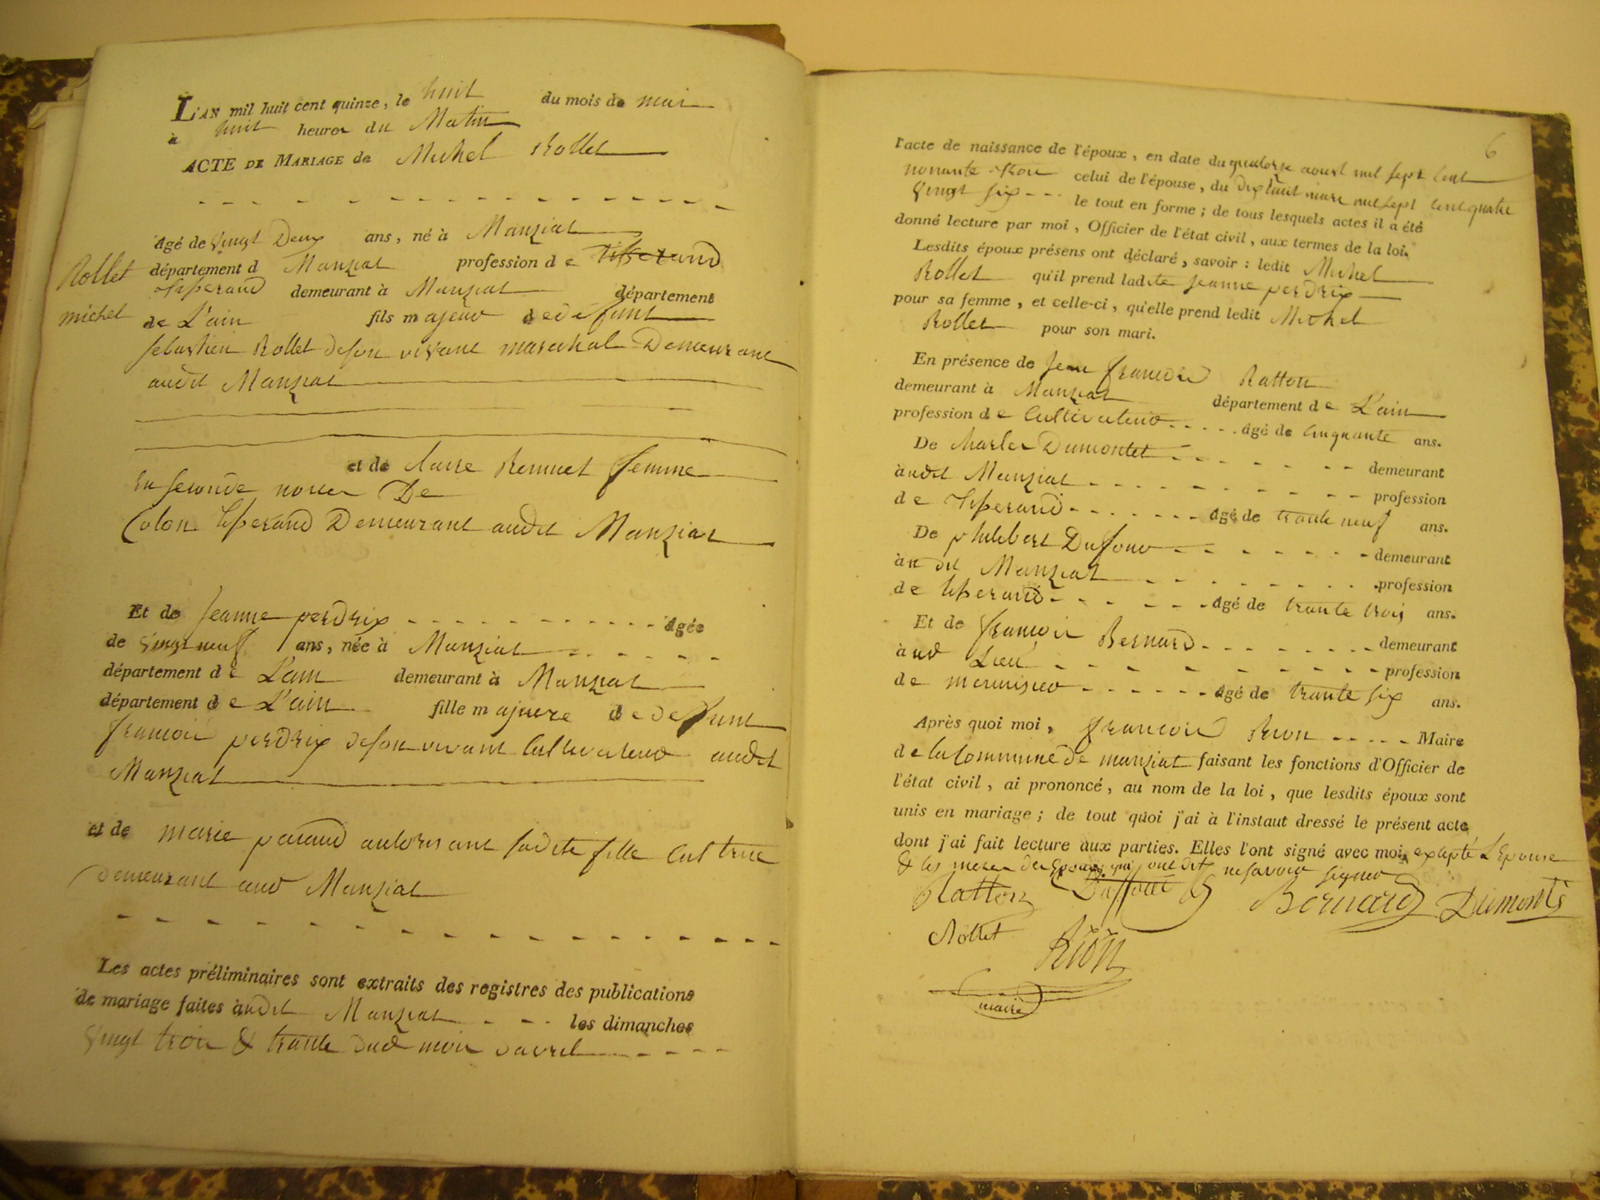 L'AN mil huit cent quinze, le huit du mois de mai
à huit heures du Matin
ACTE DE MARIAGE de Michel Rollet
âgé de vingt Deux ans, né à Manziat
Rollet
michel
département d Manziat profession de tisserand
tisserand demeurant à Manziat département
de L'ain fils majeur de defunt
sebastien Rollet de son vivant marechal Demeurant
audit Manziat
et de Claire femme
En seconde noces De
Colon tisserand Demeurant audit Manziat
Et de Jeanne perdrix âgée
de vingt neuf ans, née à Manziat
département de L'ain demeurant à Manziat
département de L'ain fille majeure de defunt
francois perdrix de son vivant Cultivateur audit
Manziat
et de marie autorisant sadite fille
demeurant aud Manziat
Les actes préliminaires sont extraits des registres des publications
de mariage faites audit Manziat les dimanches
vingt trois & trante dud mois davril
6
l'acte de naissance de l'époux, en date du quatorze aoust mil sept cent
nonante celui de l'épouse, du dix huit mars mil sept cent quatre
vingt six le tout en forme; de tous lesquels actes il a été
donné lecture par moi, Officier de l'état civil, aux termes de la loi.
Lesdits époux présens ont déclaré, savoir: ledit Michel
Rollet qu'il prend ladite Jeanne perdrix
pour sa femme, et celle-ci, qu'elle prend ledit Michel
Rollet pour son mari.
En présence de Jean francois Ratton
demeurant à Manziat département de L'ain
profession de Cultivateur âgé de Cinquante ans.
De Charles Dumontet demeurant
audit Manziat profession
de tisserand âgé de trante neuf ans.
De philibert Dufour demeurant
audit Manziat profession
de tisserand âgé de trante trois ans.
Et de francois Bernard demeurant
aud Lieu profession
de menuisier âgé de trante six ans.
Après quoi moi, francois Rion Maire
de la Commune de manziat faisant les fonctions d'Officier de
l'état civil, ai prononcé, au nom de la loi, que lesdits époux sont
unis en mariage; de tout quoi j'ai à l'instaut dressé le présent acte
dont j'ai fait lecture aux parties. Elles l'ont signé avec moi, excepté L'Epouse
& les meres des Epoux qui ont dit ne savoir signer
Ratton Bernard
Rollet Rion
maire